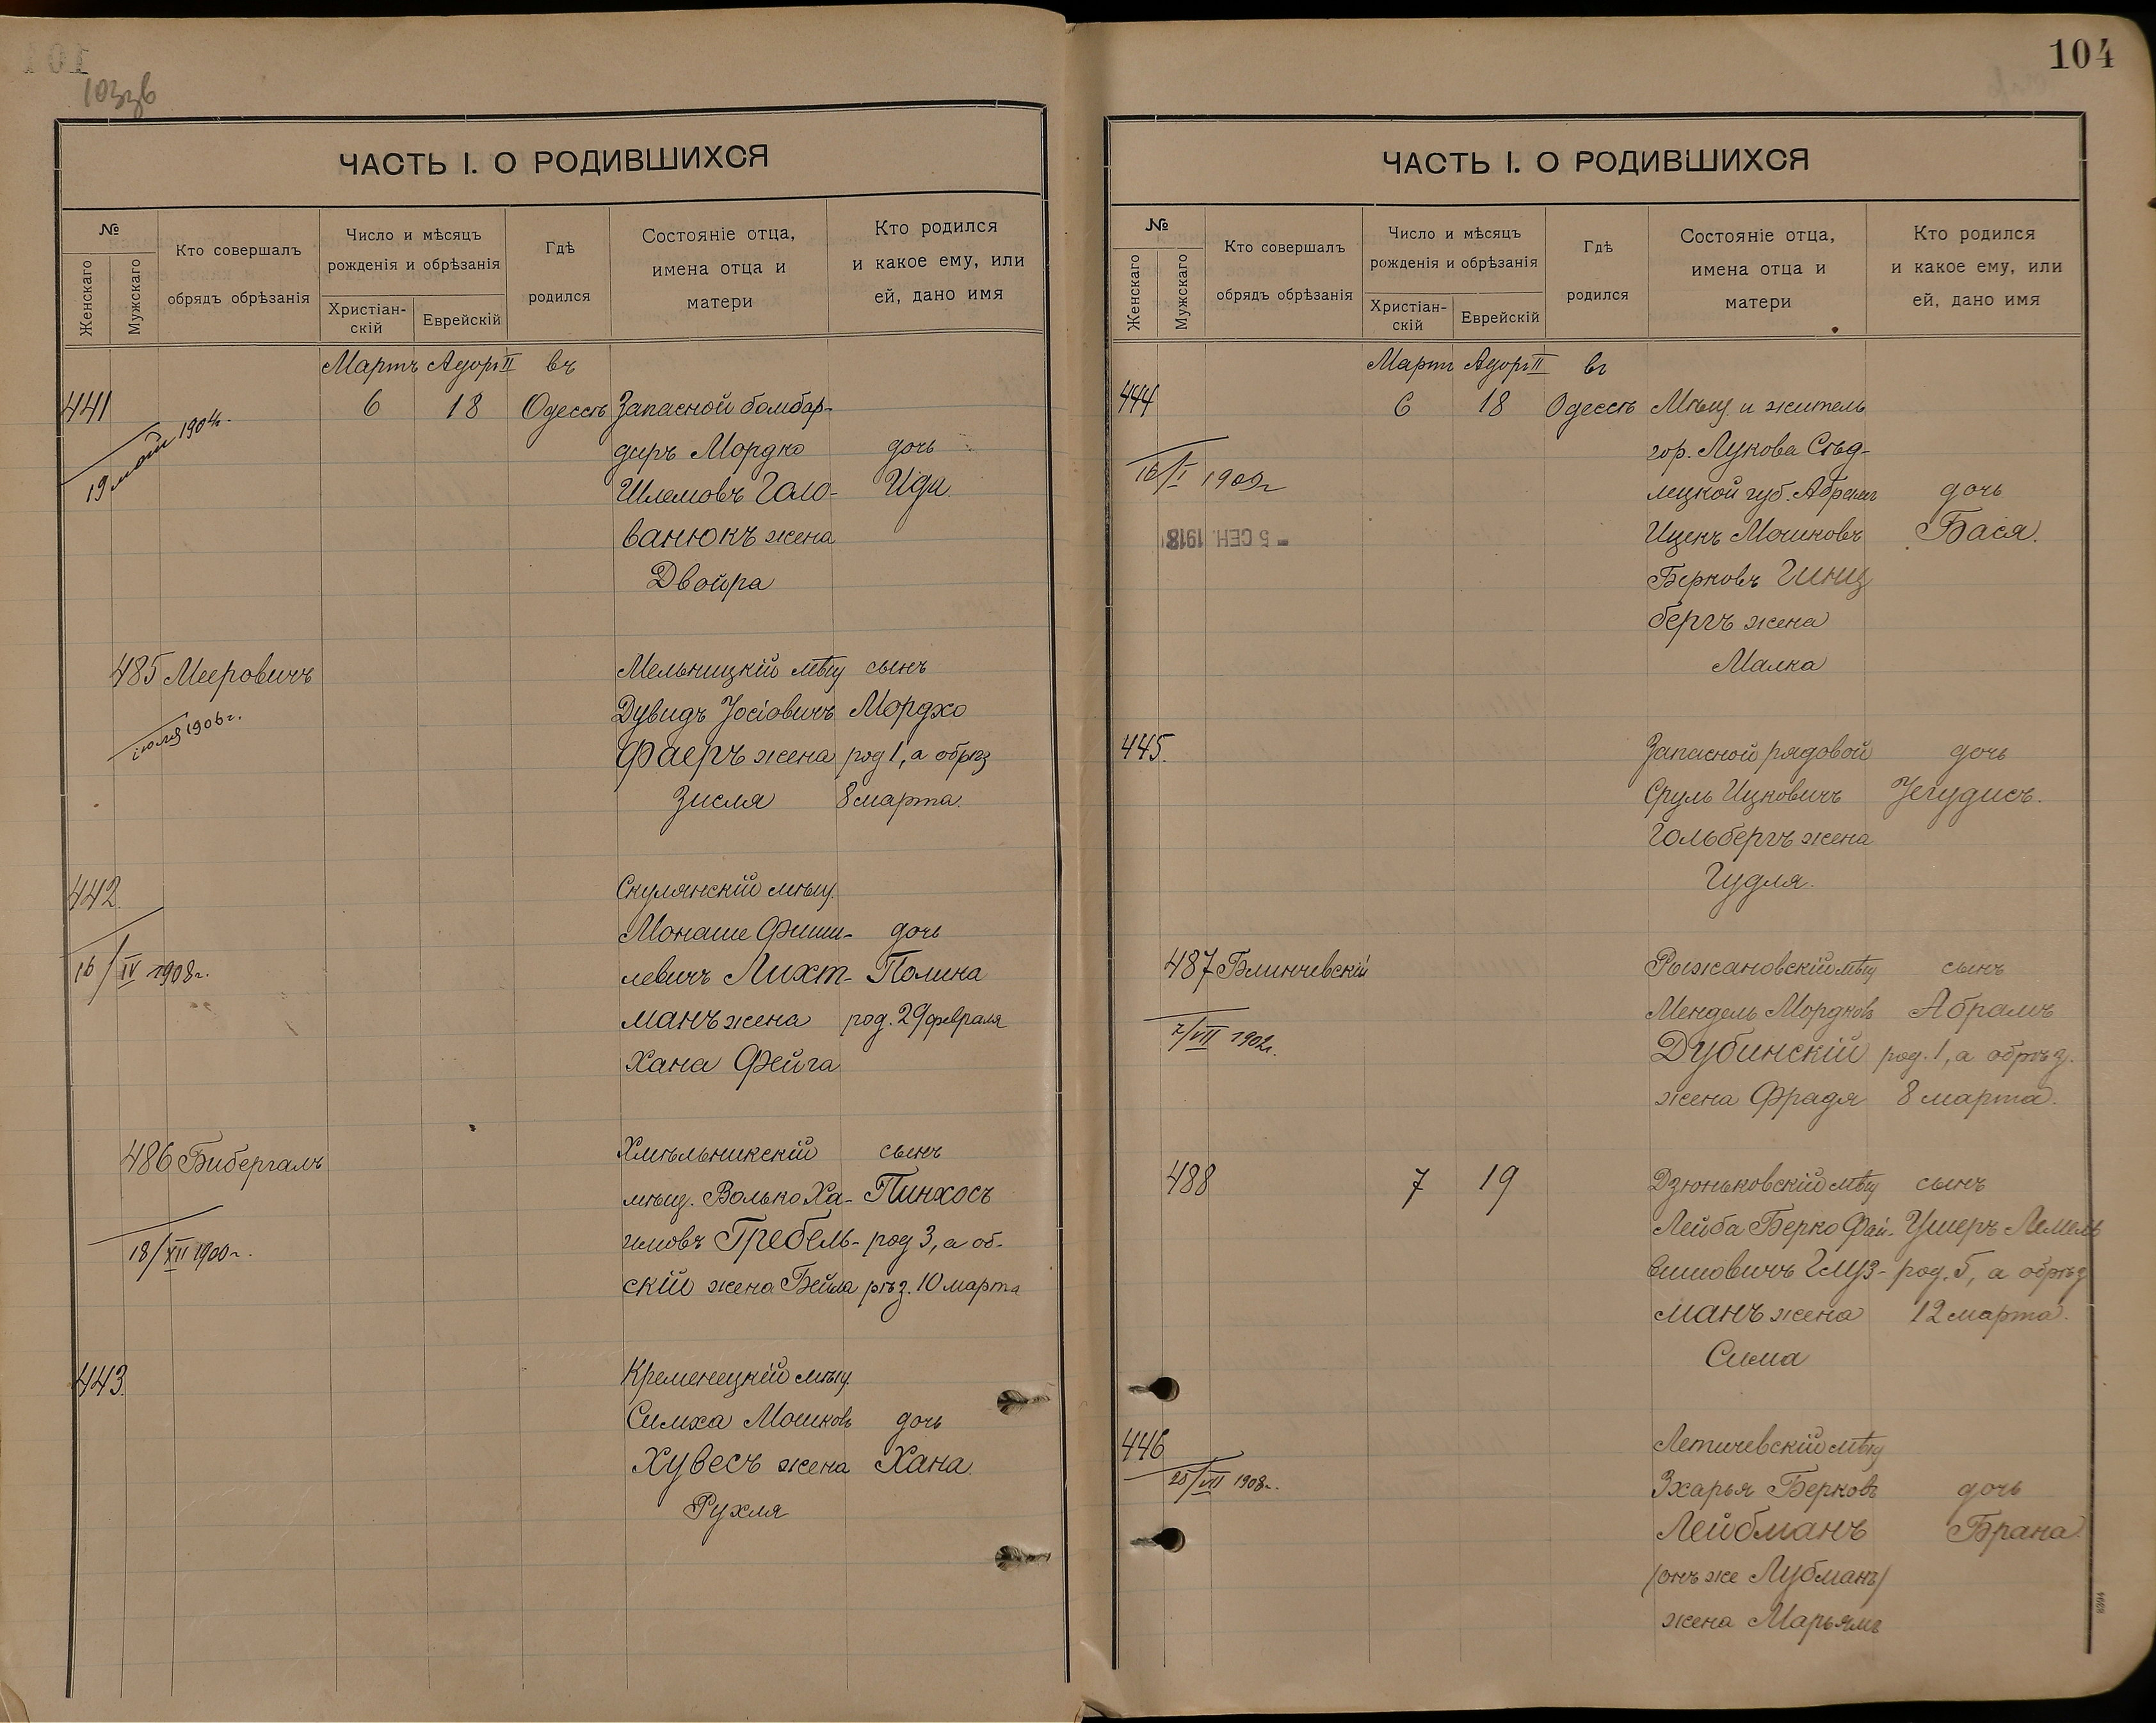 103зв
ЧАСТЬ I. О РОДИВШИХСЯ
№
Женскаго
Мужскаго
Кто совершалъ
обрядъ обрѣзанія
Число и мѣсяцъ
рожденія и обрѣзанія
Христіан-
скій
Еврейскій
Гдѣ
родился
Состояніе отца,
имена отца и
матери
Кто родился
и какое ему, или
ей, дано имя
Мартъ Адоръ II въ
441 6 18 Одессѣ Запасной бомбар-
диръ Мордко дочь
Шлемовъ Голо- Иди
ванюкъ жена
Двойра
19 1904г.
485 Мееровичъ Мельницкій мѣщ сынъ
Дувидъ Іосіовичъ Мордхо
Фаеръ жена род 1, а обрѣз
Зисля 8 марта
іюля 1906г.
442 Скулянскій мѣщ.
Монаше Фиши- дочь
левичъ Лихт- Полина
манъ жена род. 29 февраля
Хана Фейга
16/IV 1908г.
486 Бибергалъ Хмѣльникскій сынъ
мѣщ. Волько Ха- Пинхосъ
имовъ Гребель- род 3, а об-
скій жена Бейла рѣз. 10 марта
18/XII 1900г.
443 Кременецкій мѣщ.
Симха Мошковъ дочь
Хувесъ жена Хана
Рухля
104
ЧАСТЬ I. О РОДИВШИХСЯ
№
Женскаго
Мужскаго
Кто совершалъ
обрядъ обрѣзанія
Число и мѣсяцъ
рожденія и обрѣзанія
Христіан-
скій
Еврейскій
Гдѣ
родился
Состояніе отца,
имена отца и
матери
Кто родился
и какое ему, или
ей, дано имя
Мартъ Адоръ II въ
444 6 18 Одессѣ Мѣщ. и житель
гор. Лукова Сѣд-
лецкой губ. Абрамъ дочь
Ицекъ Мошковъ Бася.
Берковъ Гинц
бергъ жена
Малка
16/I 1909г
5 СЕН. 1918
445. Запасной рядовой дочь
Сруль Ицковичъ Іегудисъ.
Гольбергъ жена
Гудля.
487 Блинчевскій Рыжановскій мѣщ сынъ
Мендель Мордковъ Абрамъ
Дубинскій род. 1, а обрѣз.
жена Фрадя 8 марта.
7/VII 1902г.
488 7 19 Дзюньковскій мѣщ сынъ
Лейба Берко Фай- Ушеръ Лемель
вишовичъ Глуз- род. 5, а обрѣз
манъ жена 12 марта.
Сима
446 Летичевскій мѣщ
Зхарья Берковъ дочь
Лейбманъ Брана.
/онъ же Лубманъ/
жена Марьямъ
25/VII 1908г.